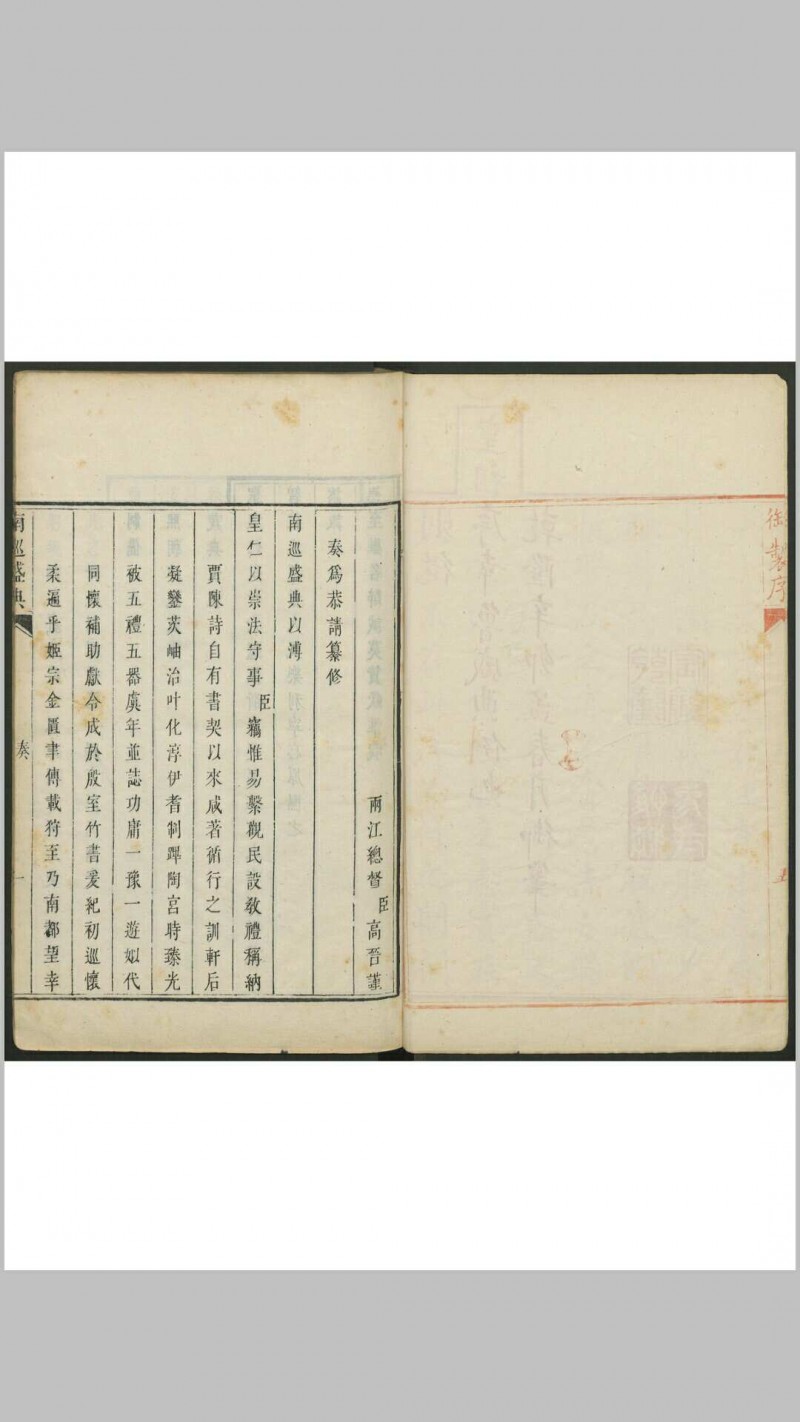 御製序
兩江總督臣高晉謹
奏爲恭請纂修
南巡盛典以溥
皇仁以崇法守事臣竊惟易繫觀民設教禮稱納
賈陳詩自有書契以來咸著循行之訓軒后
凝鑾茨岫治叶化淳伊耆制蹕陶宫時臻光
被五禮五器虞年並誌功庸一豫一遊姒代
同懷補助獻令成於殷室竹書爰紀初巡懷
柔遍乎姬宗金匱聿傳載狩至乃南都望幸
南巡盛典
奏
一